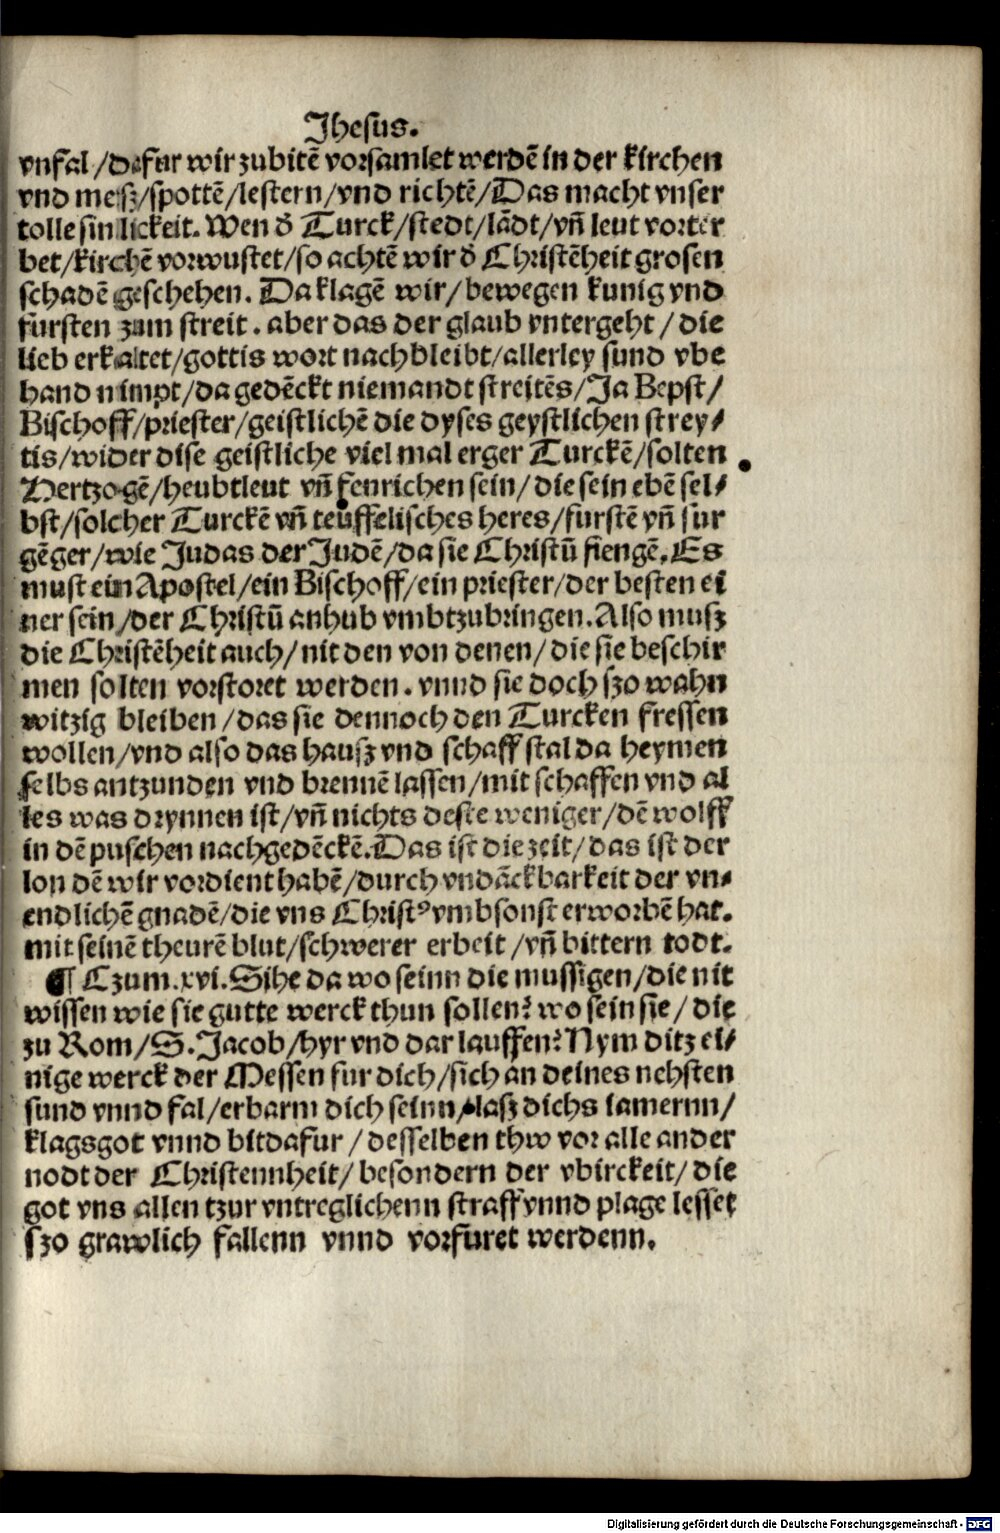 Jhesus.
vnfal/dafur wir zubitē vorsamlet werdē in der kirchen
vnd mesz/spottē/lestern/vnd richtē/Das macht vnser
tolle sinlickeit. Wen d̄ Turck/stedt/lādt/vn̄ leut vorter
bet/kirchē vorwustet/so achtē wir d̄ Christēheit grosen
schadē geschehen. Da klagē wir/bewegen kunig vnd
fursten zum streit. aber das der glaub vntergeht/die
lieb erkaltet/gottis wort nachbleibt/allerley sund vbe
hand nimpt/da gedēckt niemandt streitēs/Ja Bepst/
Bischoff/priester/geistlichē die dyses geystlichen strey⸗
tis/wider dise geistliche viel mal erger Turckē/solten
Hertzogē/heubtleut vn̄ fenrichen sein/die sein ebē sel⸗
bst/solcher Turckē vn̄ teuffelisches heres/furstē vn̄ fur
gēger/wie Judas der Judē/da sie Christū fiengē. Es
must ein Apostel/ein Bischoff/ein priester/der besten ei
ner sein/der Christū anhub vmbtzubringen. Also musz
die Christēheit auch/nit den von denen/die sie beschir
men solten vorstoret werden. vnnd sie doch szo wahn
witzig bleiben/das sie dennoch den Turcken fressen
wollen/vnd also das hausz vnd schaff stal da heymen
selbs antzunden vnd brennē lassen/mit schaffen vnd al
les was drynnen ist/vn̄ nichts deste weniger/dē wolff
in dē puschen nachgedēckē. Das ist die zeit/das ist der
lon dē wir vordient habē/durch vndāckbarkeit der vn⸗
endlichē gnadē/die vns Christꝰ vmbsonst erworbē hat.
mit seinē theurē blut/schwerer erbeit/vn̄ bittern todt.
¶ Czum.xvi. Sihe da wo seinn die mussigen/die nit
wissen wie sie gutte werck thun sollen? wo sein sie/die
zu Rom/S. Jacob/hyr vnd dar lauffen? Nym ditz ei⸗
nige werck der Messen fur dich/sich an deines nehsten
sund vnnd fal/erbarm dich seinn/lasz dichs iamernn/
klagsgot vnnd bitdafur/desselben thw vor alle ander
nodt der Christennheit/besondern der vbirckeit/die
got vns allen tzur vntreglichenn straff vnnd plage lesset
szo grawlich fallenn vnnd vorfuret werdenn.
Digitalisierung gefördert durch die Deutsche Forschungsgemeinschaft - DFG